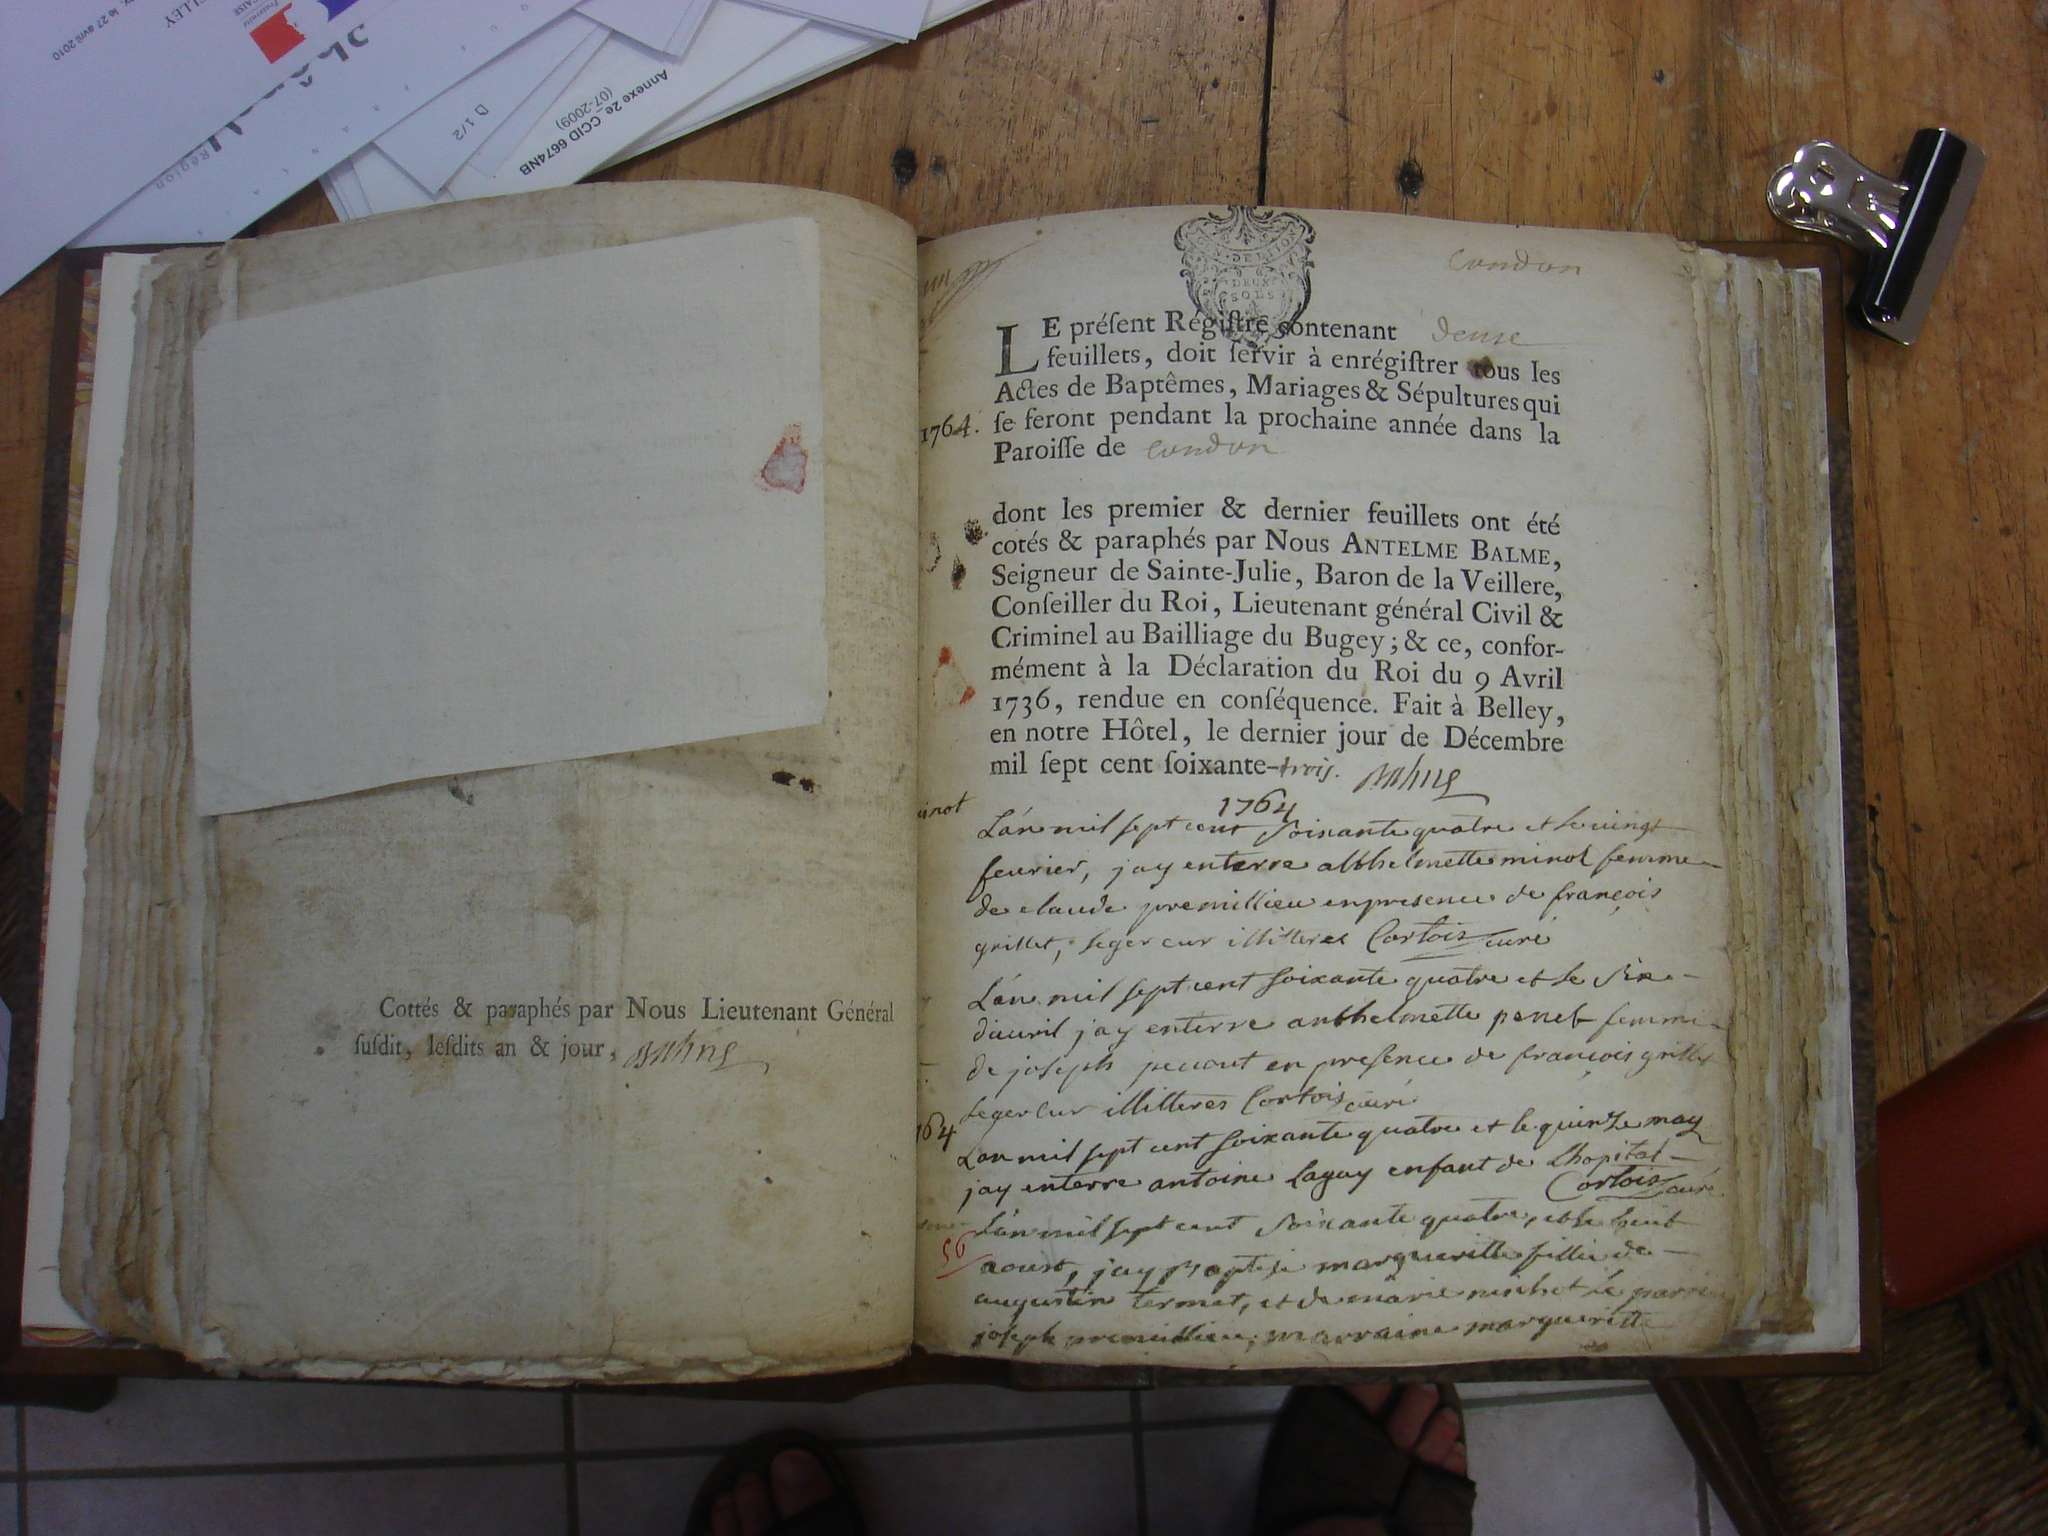 27 avril 2010
Région
D 1/2
Annexe 2e CCID 6674NB
(07-2009)
Cottés & paraphés par Nous Lieutenant Général
ſuſdit, leſdits an & jour,
DEUX
SOLS
Condon
LE préſent Régiſtre contenant deux
feuillets, doit ſervir à enrégiſtrer tous les
Actes de Baptêmes, Mariages & Sépultures qui
1764. ſe feront pendant la prochaine année dans la
Paroiſſe de Condon
dont les premier & dernier feuillets ont été
cotés & paraphés par Nous ANTELME BALME,
Seigneur de Sainte-Julie, Baron de la Veillere,
Conſeiller du Roi, Lieutenant général Civil &
Criminel au Bailliage du Bugey; & ce, confor-
mément à la Déclaration du Roi du 9 Avril
1736, rendue en conſéquence. Fait à Belley,
en notre Hôtel, le dernier jour de Décembre
mil ſept cent ſoixante-trois.
1764
L'an mil sept cent soixante quatre et le vingt
feurier, jay enterre minot femme
de claude premillieu en presence de françois
grillet, illitteres Cortois curé
L'an mil sept cent soixante quatre et le six
d'avril jay enterre anthelmette penet femme
de joseph en presence de françois grillet
illitteres Cortois curé
L'an mil sept cent soixante quatre et le quinze may
jay enterre antoine laguy enfant de Lhopital
Cortois curé
L'an mil sept cent soixante quatre, et le huit
56
aoust, jay baptise marguerite fille de
augustin termet, et de marie
joseph premillieu, marraine marguerite